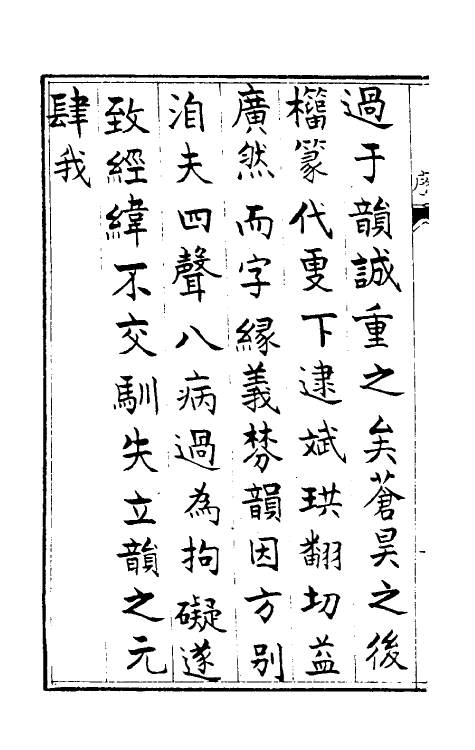 過于韻誠重之矣蒼昊之後
籀篆代更下逮斌珙翻切益
廣然而字緣義棼韻因方別
洎夫四聲八病過為拘礙遂
致經緯不交馴失立韻之元
肆我
序